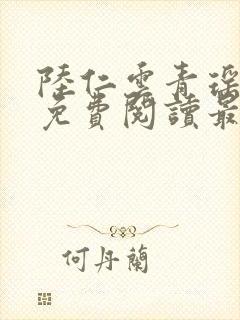 陸仁雲青瑶
免費閱讀最
何丹蘭